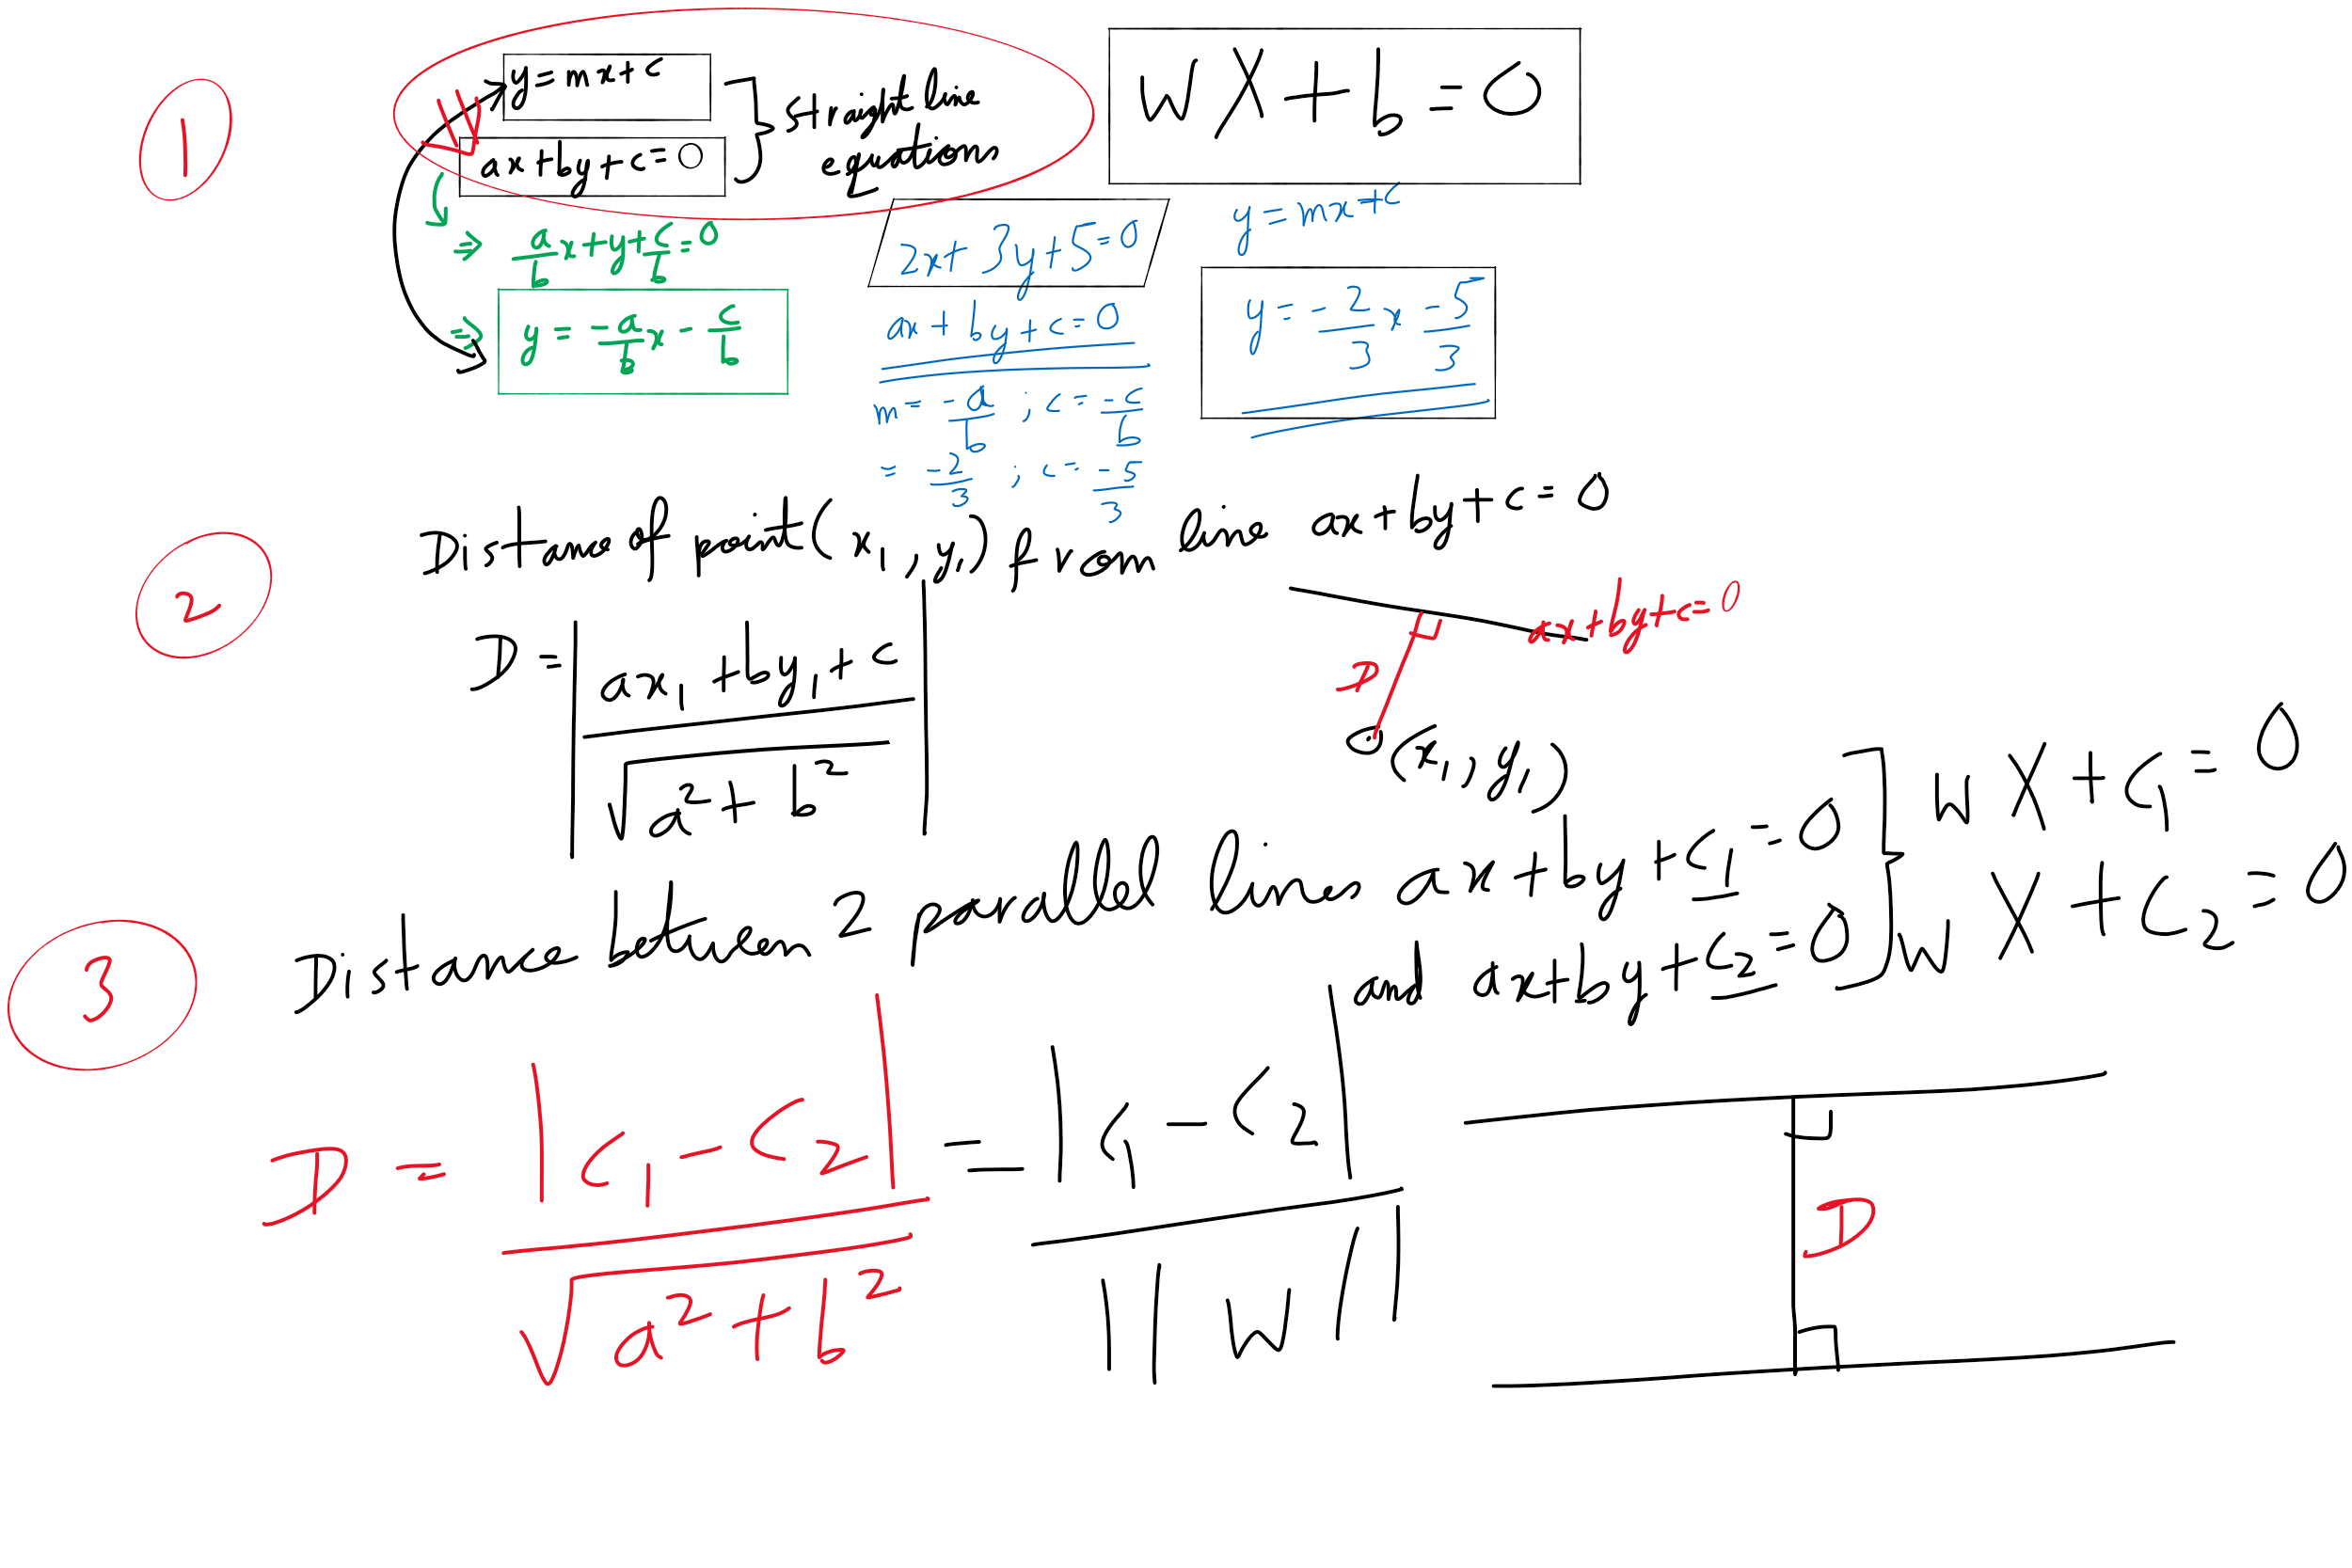 1
y = mx + c
ax + by + c = 0
} straight line
equations
WX + b = 0
⇒ a/b x + y + c/b = 0
⇒ y = -a/b x - c/b
2x + 3y + 5 = 0
ax + by + c = 0
m = -a/b ; c = -c/b
= -2/3 ; c = -5/3
y = mx + c
y = -2/3 x -5/3
2
Distance of point (x₁, y₁) from line ax + by + c = 0
D = |(ax₁ + by₁ + c)/√(a² + b²)|
ax + by + c = 0
D
(x₁, y₁)
3
Distance between 2 parallel lines ax + by + c₁ = 0
and ax + by + c₂ = 0
} WX + C₁ = 0
WX + C₂ = 0
D = |C₁ - C₂|/√(a² + b²) = |C₁ - C₂|/||W||
D